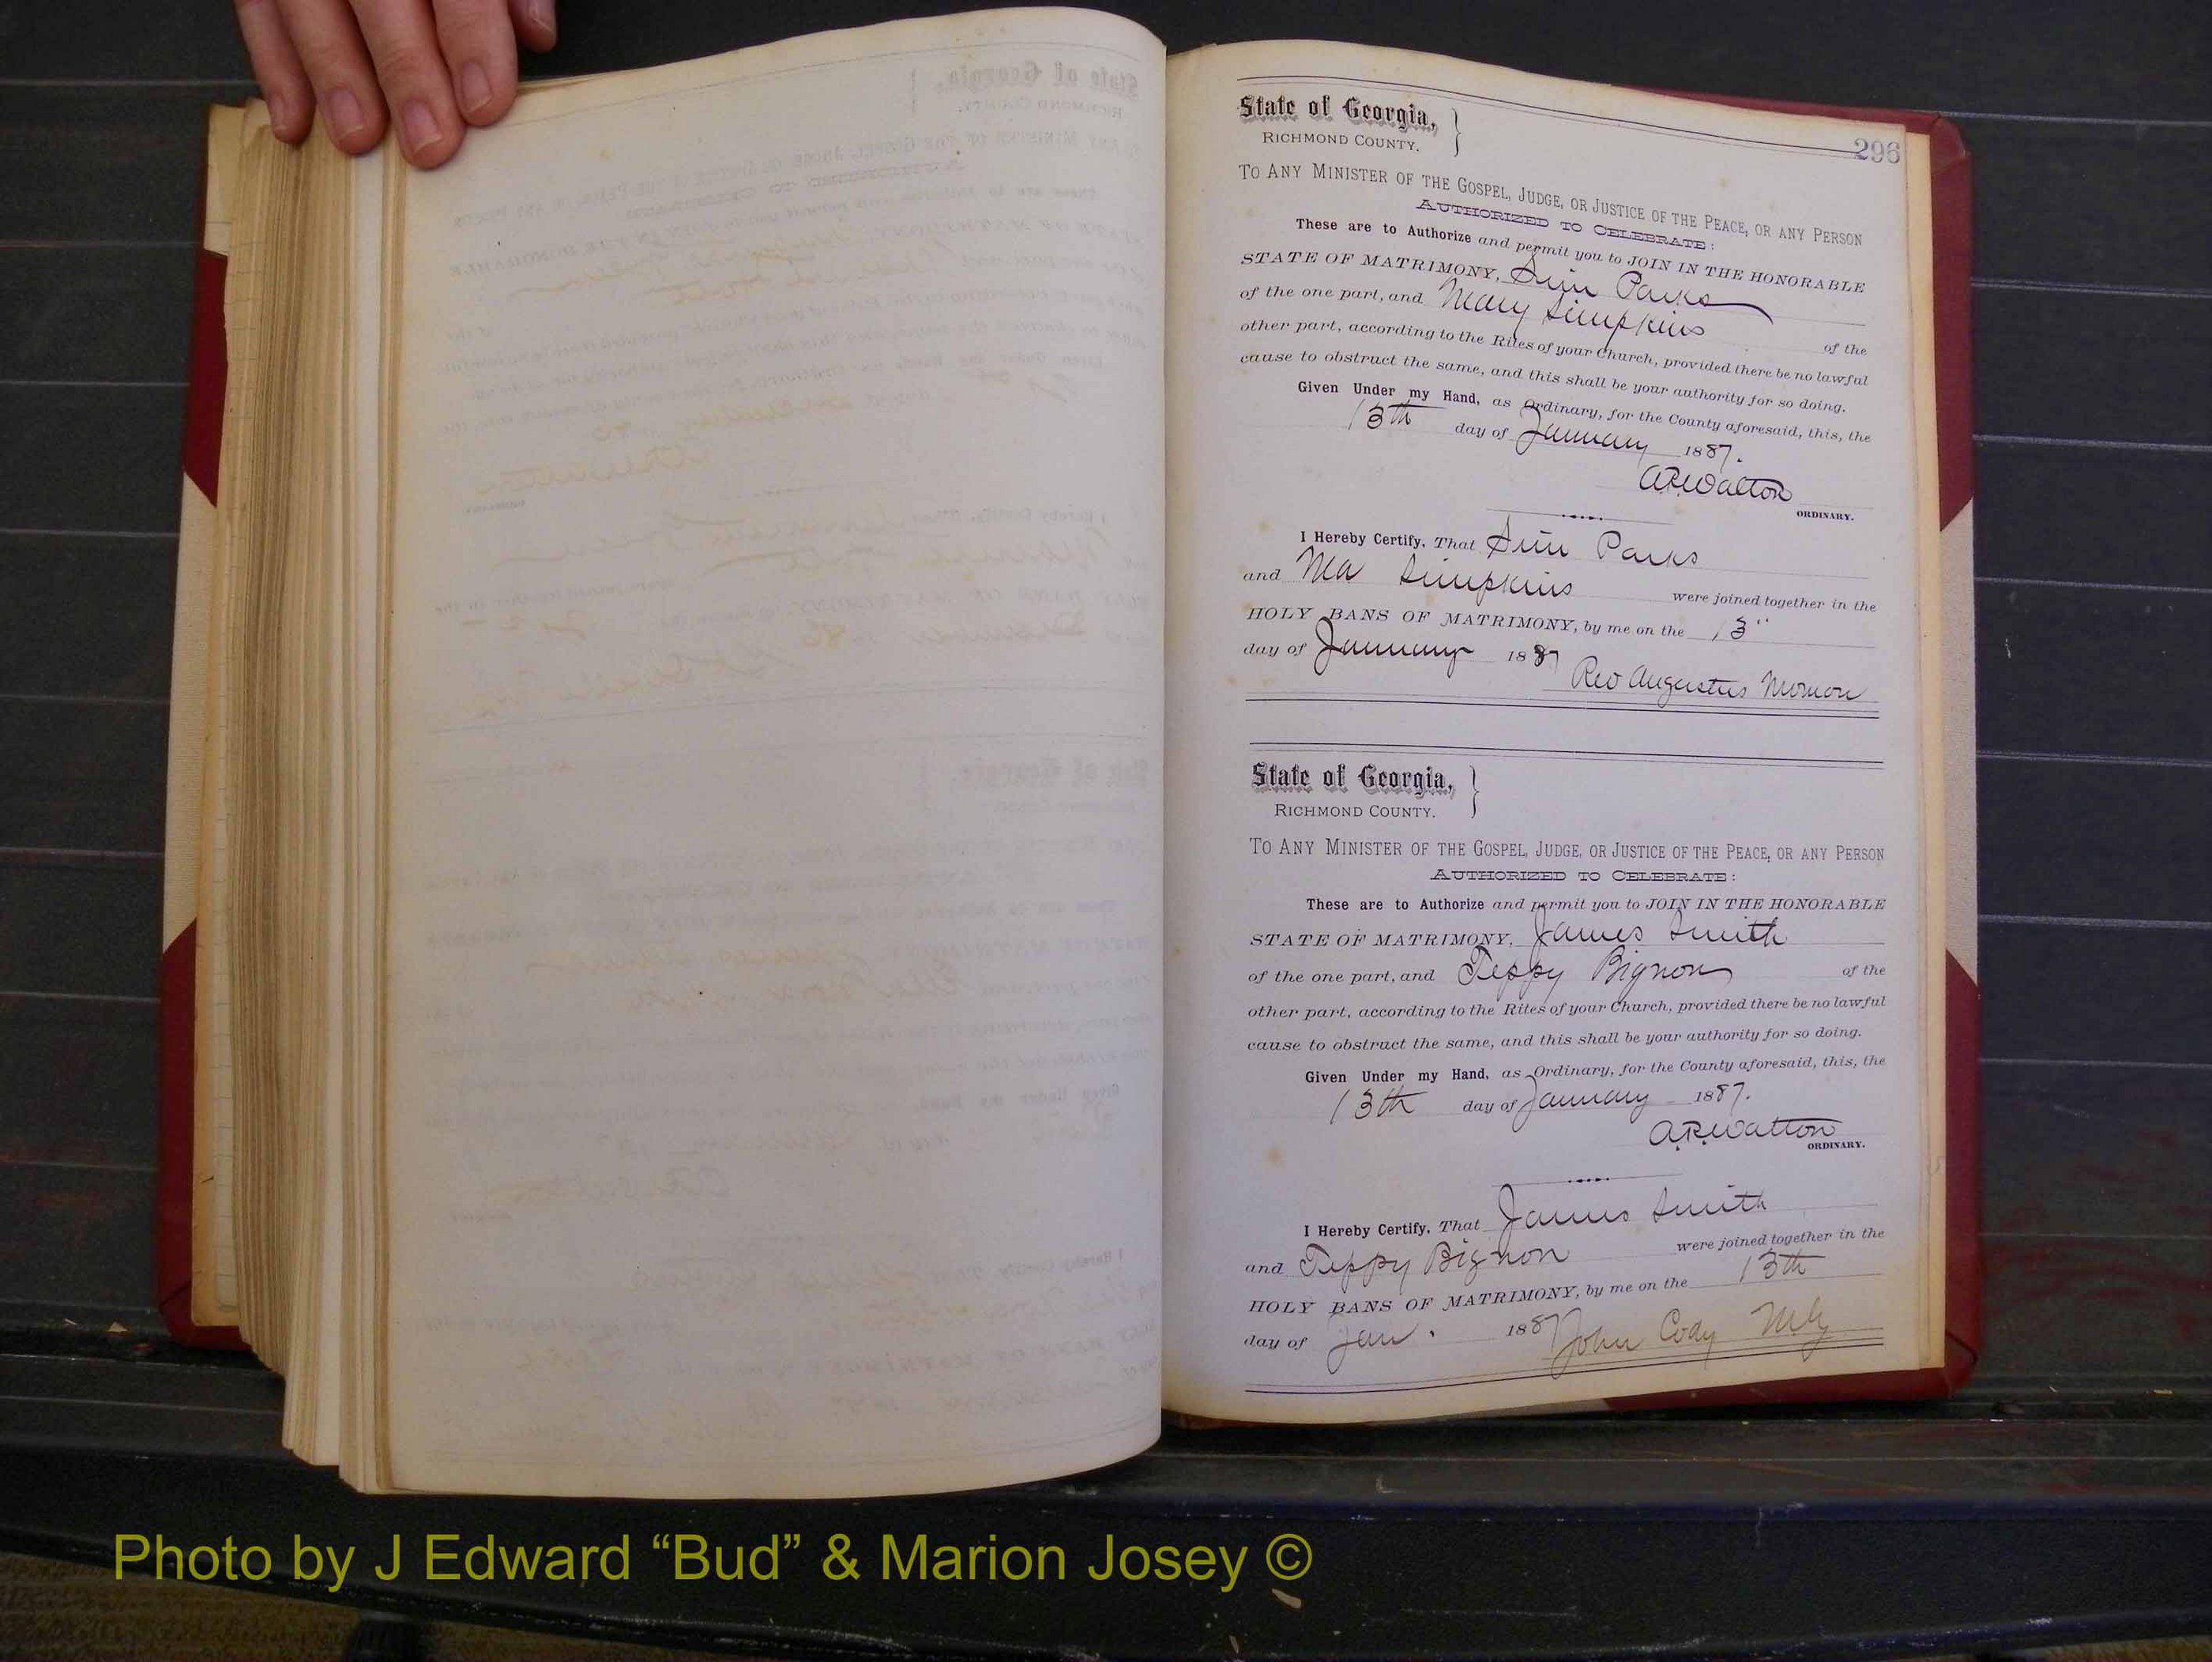 296
State of Georgia,
RICHMOND COUNTY.
TO ANY MINISTER OF THE GOSPEL, JUDGE, OR JUSTICE OF THE PEACE, OR ANY PERSON
AUTHORIZED TO CELEBRATE:
These are to Authorize and permit you to JOIN IN THE HONORABLE
STATE OF MATRIMONY, Sim Parks
of the one part, and Mary Simpkins of the
other part, according to the Rites of your Church, provided there be no lawful
cause to obstruct the same, and this shall be your authority for so doing.
Given Under my Hand, as Ordinary, for the County aforesaid, this, the
13th day of January 1887.
A.R. Walton
ORDINARY.
I Hereby Certify, That Sim Parks
and Ma Simpkins were joined together in the
HOLY BANS OF MATRIMONY, by me on the 13"
day of January 1887
Rev Augustus
State of Georgia,
RICHMOND COUNTY.
TO ANY MINISTER OF THE GOSPEL, JUDGE, OR JUSTICE OF THE PEACE, OR ANY PERSON
AUTHORIZED TO CELEBRATE:
These are to Authorize and permit you to JOIN IN THE HONORABLE
STATE OF MATRIMONY, James Smith
of the one part, and Teppy Bignon of the
other part, according to the Rites of your Church, provided there be no lawful
cause to obstruct the same, and this shall be your authority for so doing.
Given Under my Hand, as Ordinary, for the County aforesaid, this, the
13th day of January 1887.
A.R. Walton
ORDINARY.
I Hereby Certify, That James Smith
and Teppy Bignon were joined together in the
HOLY BANS OF MATRIMONY, by me on the 13th
day of Jan. 1887 John Cody M.G
Photo by J Edward “Bud” & Marion Josey ©